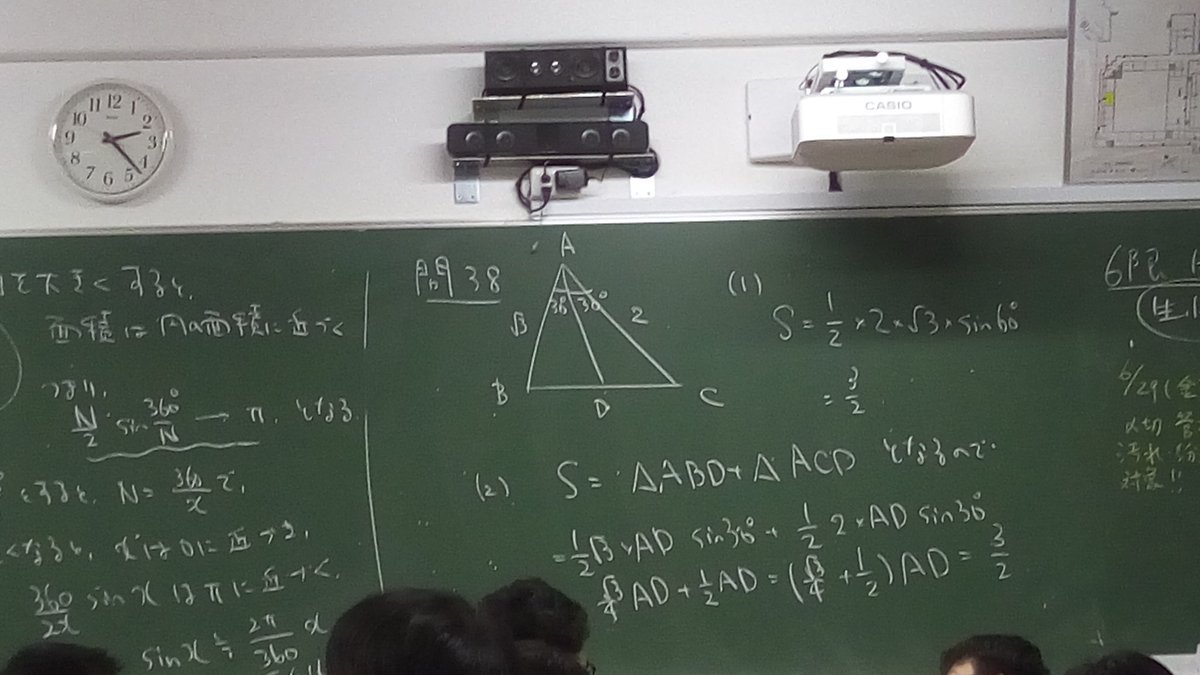 12 1 2 3 4 5 6 7 8 9 10 11
CASIO
大きくすると、
面積は円の面積に近づく
つまり、
N/2 sin 360°/N → π. となる
とすると、N = 360/x で、
くなるも、xは0に近づき、
360/2x sin x はπに近づく、
sin x ≒ 2π/360 x
問38
A
36° 30°
√3
2
B
D
C
(1)
S = 1/2 × 2 × √3 × sin60°
= 3/2
(2) S = △ABD + △ACD となるので.
= 1/2 √3 × AD sin30° + 1/2 2 × AD sin30°
√3/4 AD + 1/2 AD = (√3/4 + 1/2) AD = 3/2
6限
6/29(金
〆切
対象!!